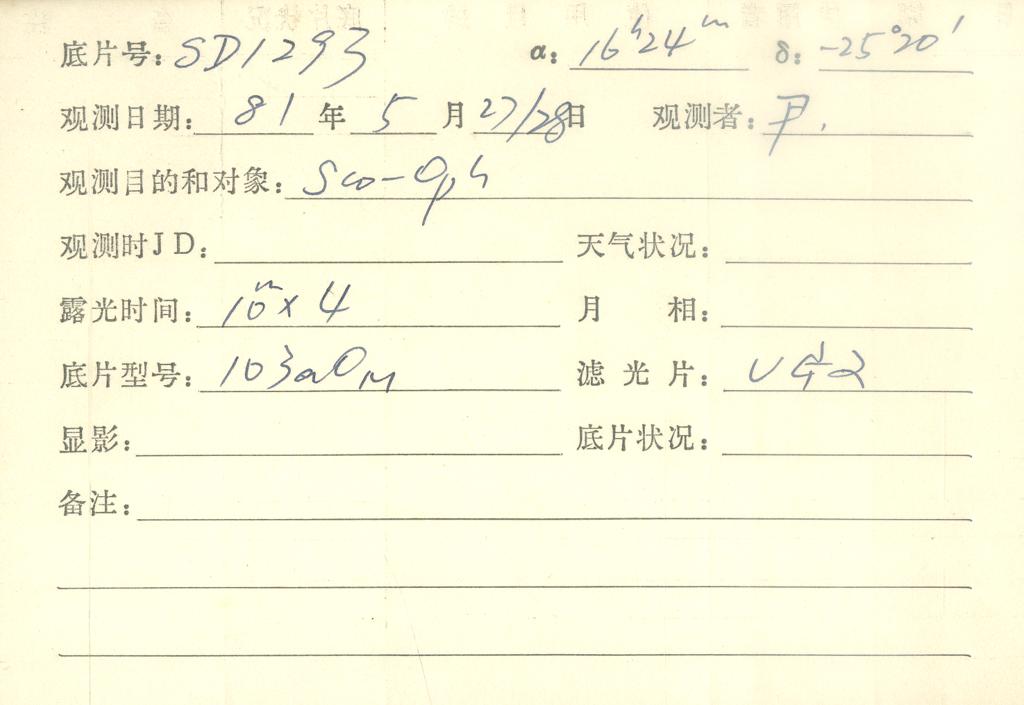 底片号: SD1293 α: 16ʰ24ᵐ δ: -25°20′
观测日期: 81 年 5 月 27/28 日 观测者: 尹.
观测目的和对象: Sco-Oph
观测时JD: 天气状况:
露光时间: 10ᵐ×4 月 相:
底片型号: 103aO 滤光片:
显影: 底片状况:
备注: